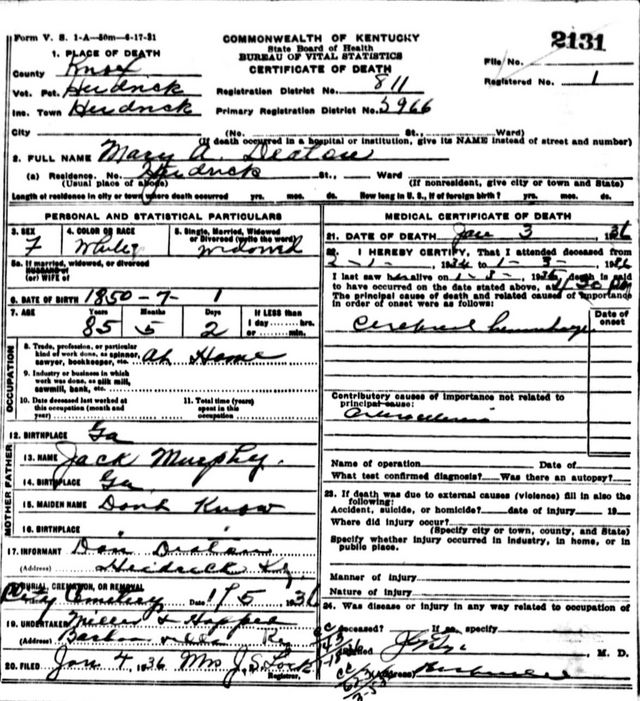 Form V. S. 1-A-50m-6-17-31
COMMONWEALTH OF KENTUCKY
State Board of Health
BUREAU OF VITAL STATISTICS
CERTIFICATE OF DEATH
2131
File No.
Registered No. 1
1. PLACE OF DEATH
County Knox
Vot. Pct. Heidrick
Inc. Town Heidrick
Registration District No. 811
Primary Registration District No. 5966
City (No. St., Ward)
(If death occurred in a hospital or institution, give its NAME instead of street and number)
2. FULL NAME Mary A. Deaton
(a) Residence. No. Heidrick St., Ward
(Usual place of abode) (If nonresident, give city or town and State)
Length of residence in city or town where death occurred yrs. mos. ds. How long in U. S., if of foreign birth? yrs. mos. ds.
PERSONAL AND STATISTICAL PARTICULARS
3. SEX F
4. COLOR OR RACE White
5. Single, Married, Widowed or Divorced (write the word) Widowed
5a. If married, widowed, or divorced
HUSBAND of
(or) WIFE of
6. DATE OF BIRTH 1850-7-1
7. AGE Years Months Days If LESS than
85 5 2 1 day hrs. or min.
OCCUPATION
8. Trade, profession, or particular
kind of work done, as spinner,
sawyer, bookkeeper, etc. At Home
9. Industry or business in which
work was done, as silk mill,
sawmill, bank, etc.
10. Date deceased last worked at
this occupation (month and
year)
11. Total time (years)
spent in this
occupation
12. BIRTHPLACE Ga
FATHER
13. NAME Jack Murphy.
14. BIRTHPLACE Ga
MOTHER
15. MAIDEN NAME Dont Know
16. BIRTHPLACE " "
17. INFORMANT Dan Deaton
(Address) Heidrick Ky.
18. BURIAL, CREMATION, OR REMOVAL
Cemetery Date 1/5 1936
19. UNDERTAKER Miller & Hopper
(Address) Barbourville Ky
20. FILED Jan 4, 1936 Mrs J. S. Lock
Registrar.
MEDICAL CERTIFICATE OF DEATH
21. DATE OF DEATH Jan 3 1936
22. I HEREBY CERTIFY, That I attended deceased from
1-3-
I last saw her alive on 1-3-, 1936, death is said
to have occurred on the date stated above, at
The principal cause of death and related causes of importance
in order of onset were as follows:
Date of onset
Cerebral hemorrhage
Contributory causes of importance not related to
principal cause:
Name of operation Date of
What test confirmed diagnosis? Was there an autopsy?
23. If death was due to external causes (violence) fill in also the
following:
Accident, suicide, or homicide? date of injury 19
Where did injury occur?
(Specify city or town, county, and State)
Specify whether injury occurred in industry, in home, or in
public place.
Manner of injury
Nature of injury
24. Was disease or injury in any way related to occupation of
deceased? If so, specify
M. D.
(Address)